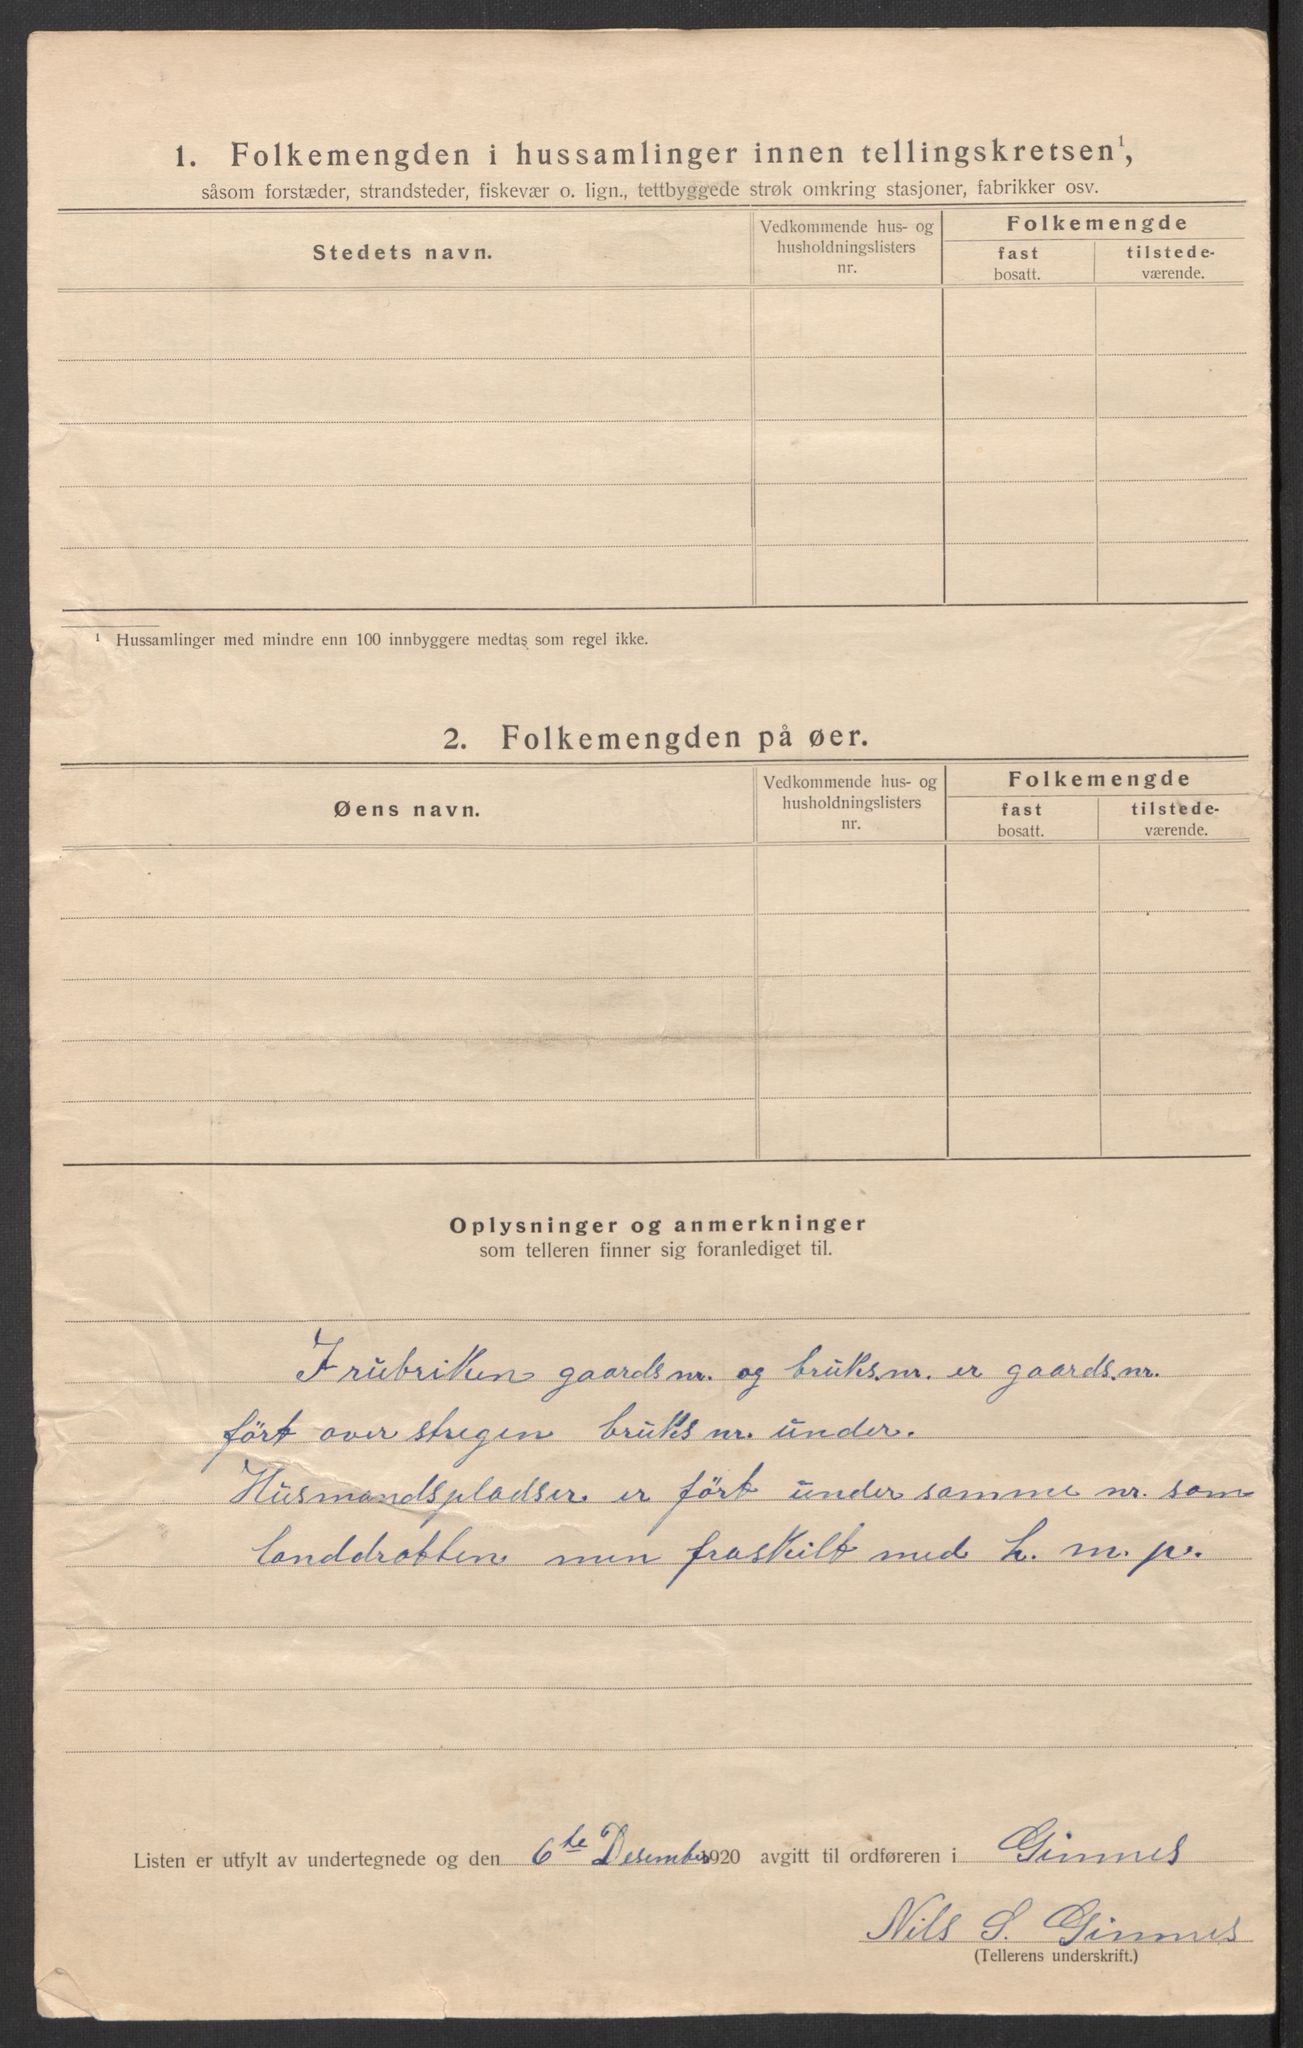 1. Folkemengden i hussamlinger innen tellingskretsen¹,
såsom forstæder, strandsteder, fiskevær o. lign., tettbyggede strøk omkring stasjoner, fabrikker osv.
Stedets navn.
Vedkommende hus- og
husholdningslisters
nr.
Folkemengde
fast
bosatt.
tilstede-
værende.
¹ Hussamlinger med mindre enn 100 innbyggere medtas som regel ikke.
2. Folkemengden på øer.
Øens navn.
Vedkommende hus- og
husholdningslisters
nr.
Folkemengde
fast
bosatt.
tilstede-
værende.
Oplysninger og anmerkninger
som telleren finner sig foranlediget til.
I rubriken gaards nr. og bruks.nr. er gaards.nr.
fört over stregen bruks nr. under.
Husmandspladser er fört under samme nr. som
landdrotten men fraskilt med h. m. p.
Listen er utfylt av undertegnede og den 6te Desember 1920 avgitt til ordføreren i Gimnes
Nils S. Gimnes
(Tellerens underskrift.)